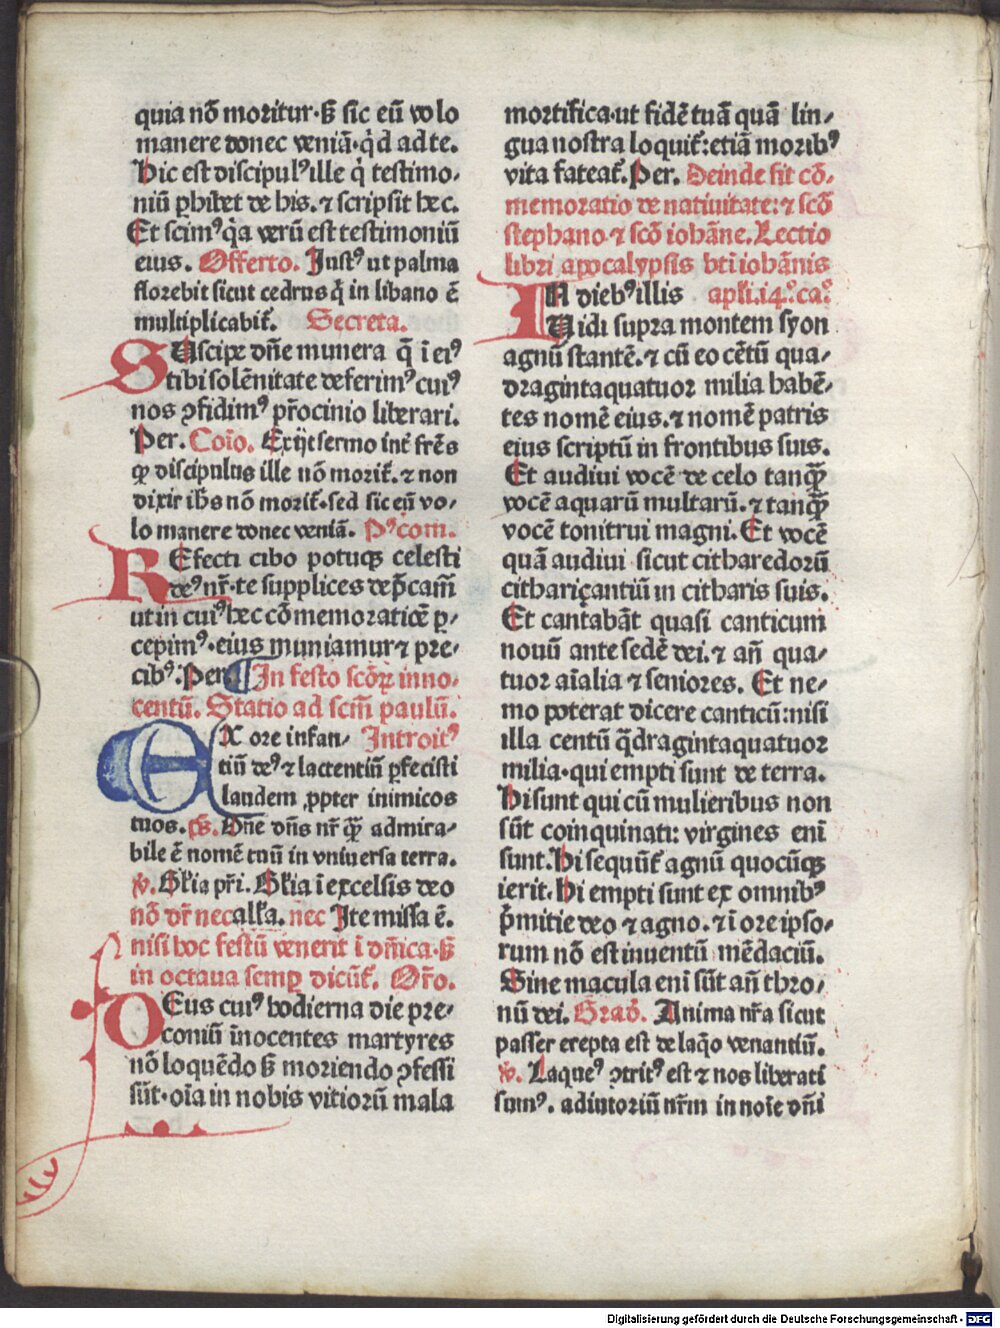 quia nō moritur·ꝫ sic eū volo
manere donec veniā·qͥd ad te.
Hic est discipul⁹ ille qͥ testimo-
niū ꝑhibet de his. ⁊ scripsit hec.
Et scim⁹ qͥa verū est testimoniū
eius. Offerto. Iust⁹ ut palma
florebit sicut cedrus q̄ in libano ē
multiplicabit᷑. Secreta.
SUscipe dn̄e munera q̄ ī ei⁹
tibi solēnitate deferim⁹ cui⁹
nos ꝯfidim⁹ pr̄ocinio liberari.
Per. Coīo. Exijt sermo int̄ fr̄es
ꝙ discipulus ille nō morit᷑. ⁊ non
dixit ihs̄ nō morit᷑·sed sic eū vo-
lo manere donec veniā. P⁹com.
REfecti cibo potuqꝫ celesti
de⁹ nr̄·te supplices dep̄cam̄
ut in cui⁹ hec cōmemoratiōe ꝑ-
cepim⁹·eius muniamur ⁊ pre-
cib⁹. Per. In festo scōꝝ inno-
centū. Statio ad scm̄ paulū.
EX ore infan- Introit⁹
tiū de⁹ ⁊ lactentiū ꝑfecisti
laudem ꝓpter inimicos
tuos. ps̄. Dn̄e dn̄s nr̄ ꝙ̄ admira-
bile ē nomē tuū in vniuersa terra.
℣. Gl̄ia pr̄i. Gl̄ia ī excelsis deo
nō dr̄ nec all̄a. nec Ite missa ē.
nisi hoc festū venerit ī dn̄ica·ꝫ
in octaua semꝑ dicūt᷑. Or̄o.
DEus cui⁹ hodierna die pre-
coniū īnocentes martyres
nō loquēdo ꝫ moriendo ꝯfessi
sūt·oīa in nobis vitiorū mala
mortifica·ut fidē tuā quā lin-
gua nostra loquit᷑: etiā morib⁹
vita fateat᷑. Per. Deinde fit cō-
memoratio de natiuitate: ⁊ scō
stephano ⁊ scō iohāne. Lectio
libri apocalypsis bt̄i iohānis
IN dieb⁹ illis apl̄i. i4.° ca.°
Vidi supra montem syon
agnū stantē. ⁊ cū eo cētū qua-
dragintaquatuor milia habē-
tes nomē eius. ⁊ nomē patris
eius scriptū in frontibus suis.
Et audiui vocē de celo tanꝙ̄
vocē aquarū multarū. ⁊ tanꝙ̄
vocē tonitrui magni. Et vocē
quā audiui sicut citharedorū
cithariçantiū in citharis suis.
Et cantabāt quasi canticum
nouū ante sedē dei. ⁊ an̄ qua-
tuor aīalia ⁊ seniores. Et ne-
mo poterat dicere canticū: nisi
illa centū q̄dragintaquatuor
milia·qui empti sunt de terra.
Hi sunt qui cū mulieribus non
sūt coinquinati: virgines eni
sunt. Hi sequūt᷑ agnū quocūqꝫ
ierit. Hi empti sunt ex omnib⁹
p̄mitie deo ⁊ agno. ⁊ ī ore ipso-
rum nō est inuentū mēdaciū.
Sine macula eni sūt an̄ thro-
nū dei. Grad̄. Anima nr̄a sicut
passer erepta est de laq̄o venantiū.
℣. Laque⁹ ꝯtrit⁹ est ⁊ nos liberati
sum⁹. adiutoriū nr̄m in noīe dn̄i
Digitalisierung gefördert durch die Deutsche Forschungsgemeinschaft - DFG